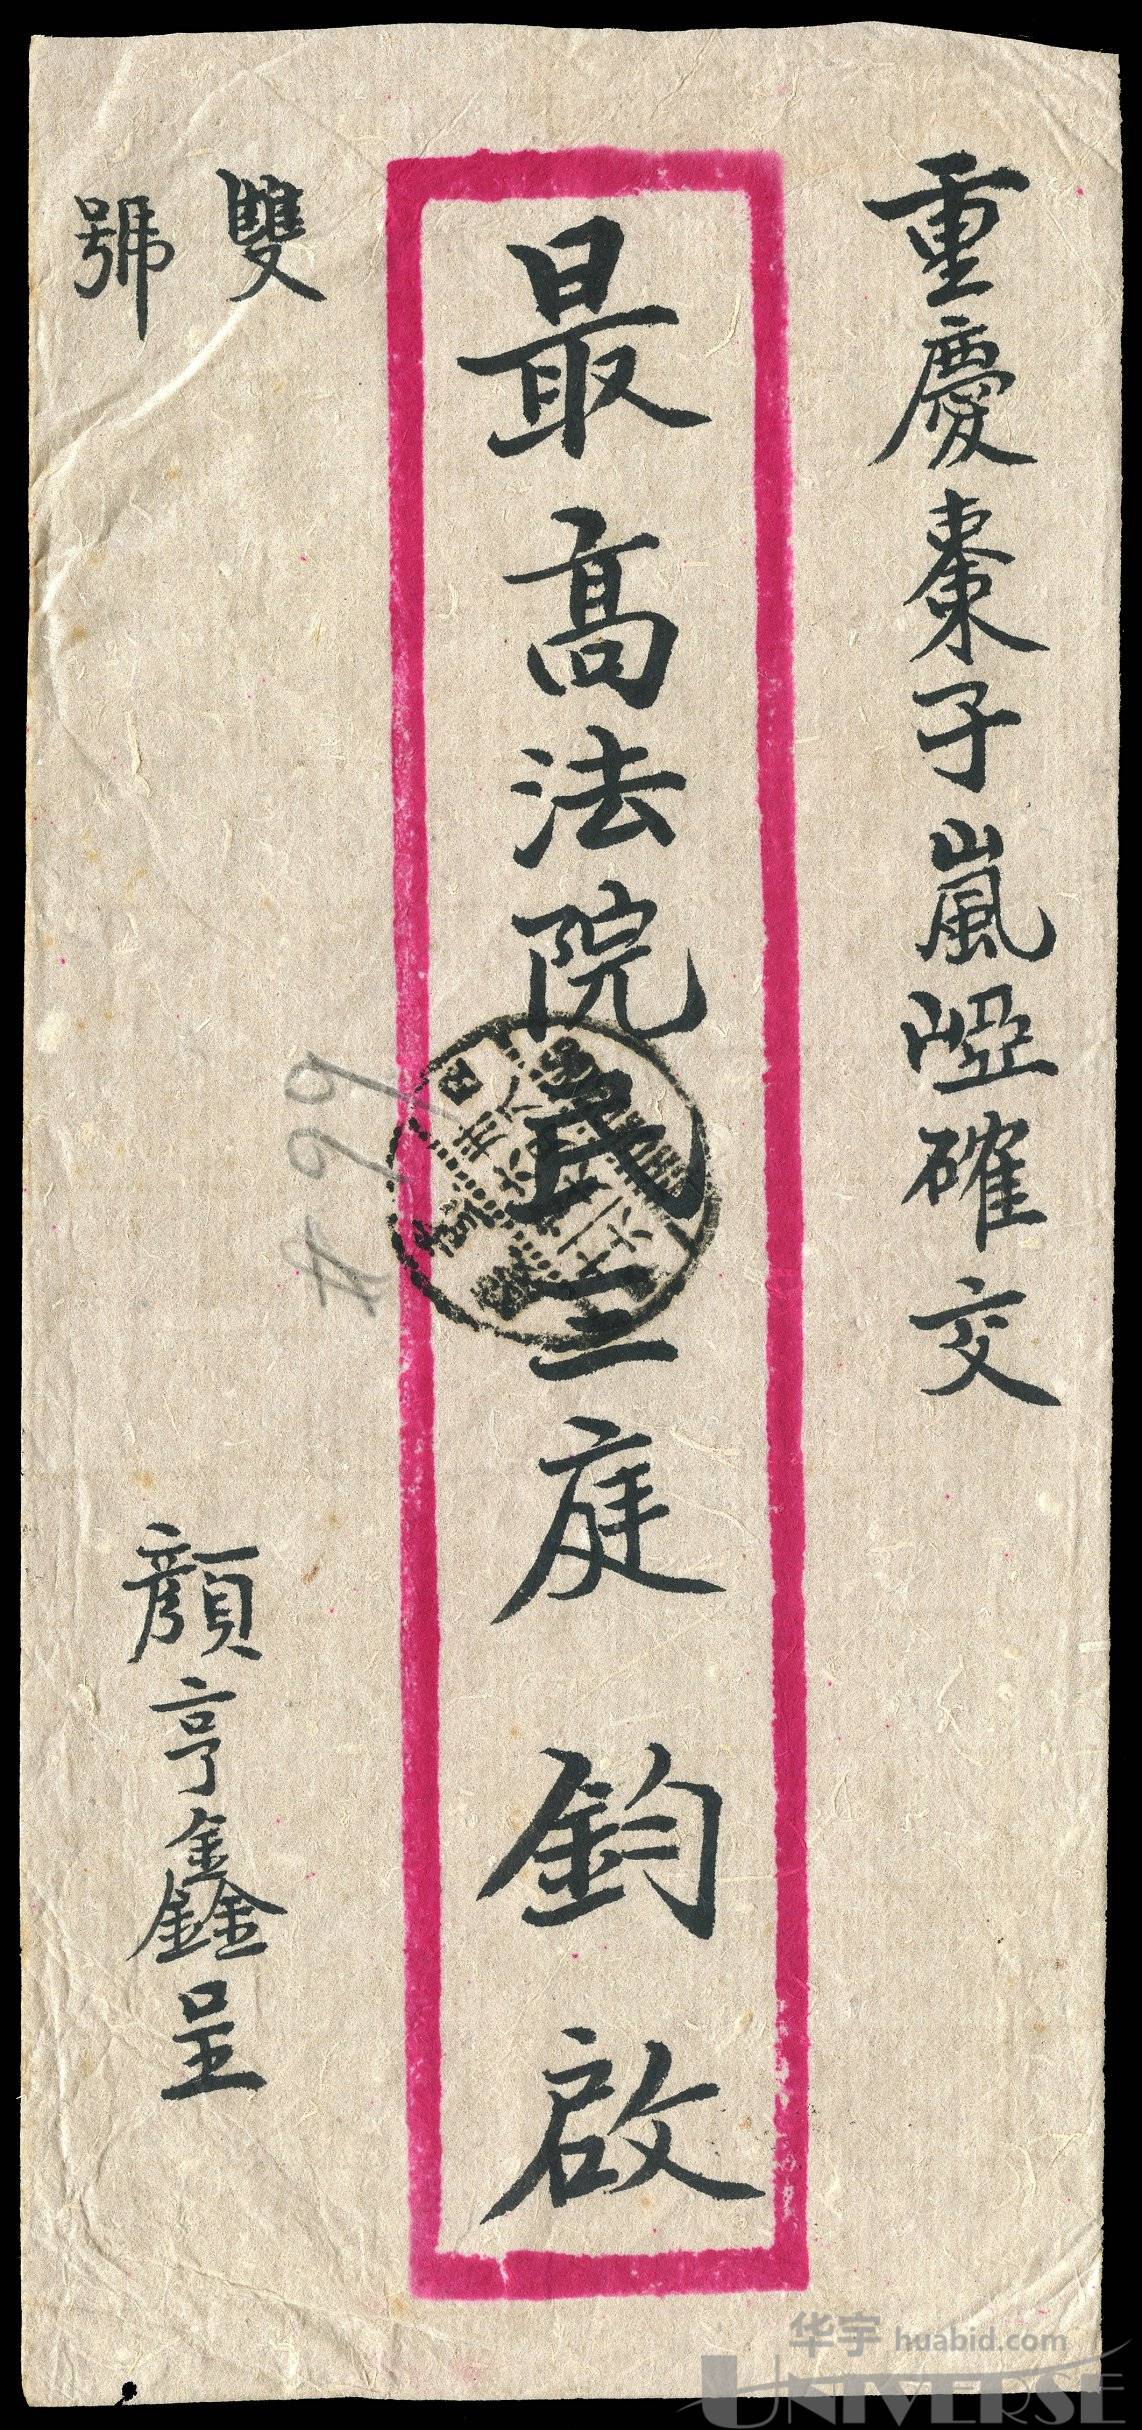 重慶棗子嵐埡確交
最高法院民三庭 鈞啟
雙
號
顏亨鑫呈
华宇 huabid.com
UNIVERSE